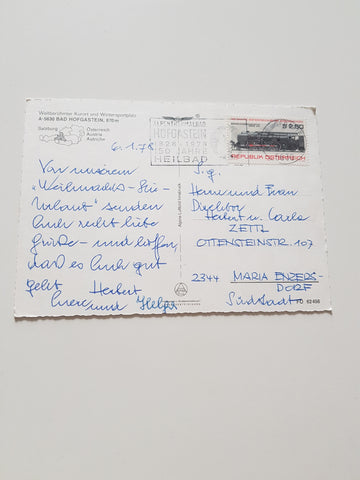 Weltberühmter Kurort und Wintersportplatz
A-5630 BAD HOFGASTEIN, 870 m
Salzburg
Österreich
Austria
Autriche
6.1.78
HOFGASTEIN
1828 1978
150 JAHRE
HEILBAD
S 2.50
REPUBLIK ÖSTERREICH
Von unserem
„Weihnachts-Ski-
Urlaub" senden
Euch recht liebe
Grüße - und hoffen,
daß es Euch gut
geht Herbert
und Helga
S. g.
Herrn und Frau
Direktor
Herbert u. Carla
ZETTL
OTTENSTEINSTR. 107
2344 MARIA ENZERS-
DORF
Südstadt
62456